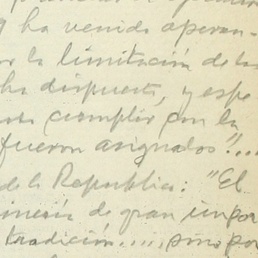 y ha venido operan-
or la limitación de las
ha dispuesto, y espe
cumplir con la
fueron asignalos!...
de la República: "El
de gran impor
tradición...., sino por